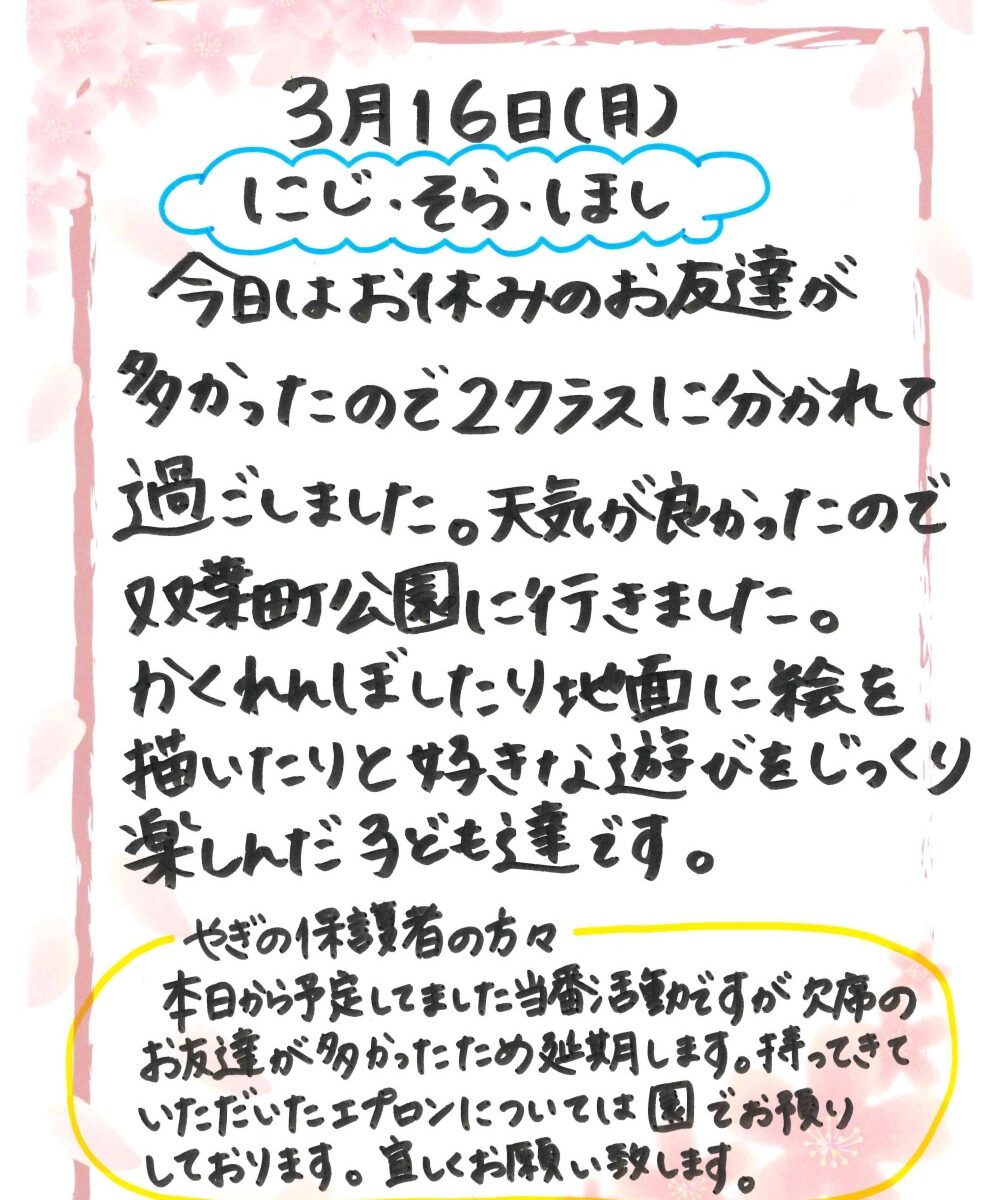 3月16日(月)
にじ・そら・しほし
今日はお休みのお友達が
多かったので2クラスに分かれて
過ごしました。天気が良かったので
双葉町公園に行きました。
かくれんぼしたり地面に絵を
描いたりと好きな遊びをじっくり
楽しんだ子ども達です。
やぎの保護者の方々
本日から予定してました当番活動ですが欠席の
お友達が多かったため延期します。持ってきて
いただいたエプロンについては園でお預り
しております。宜しくお願い致します。